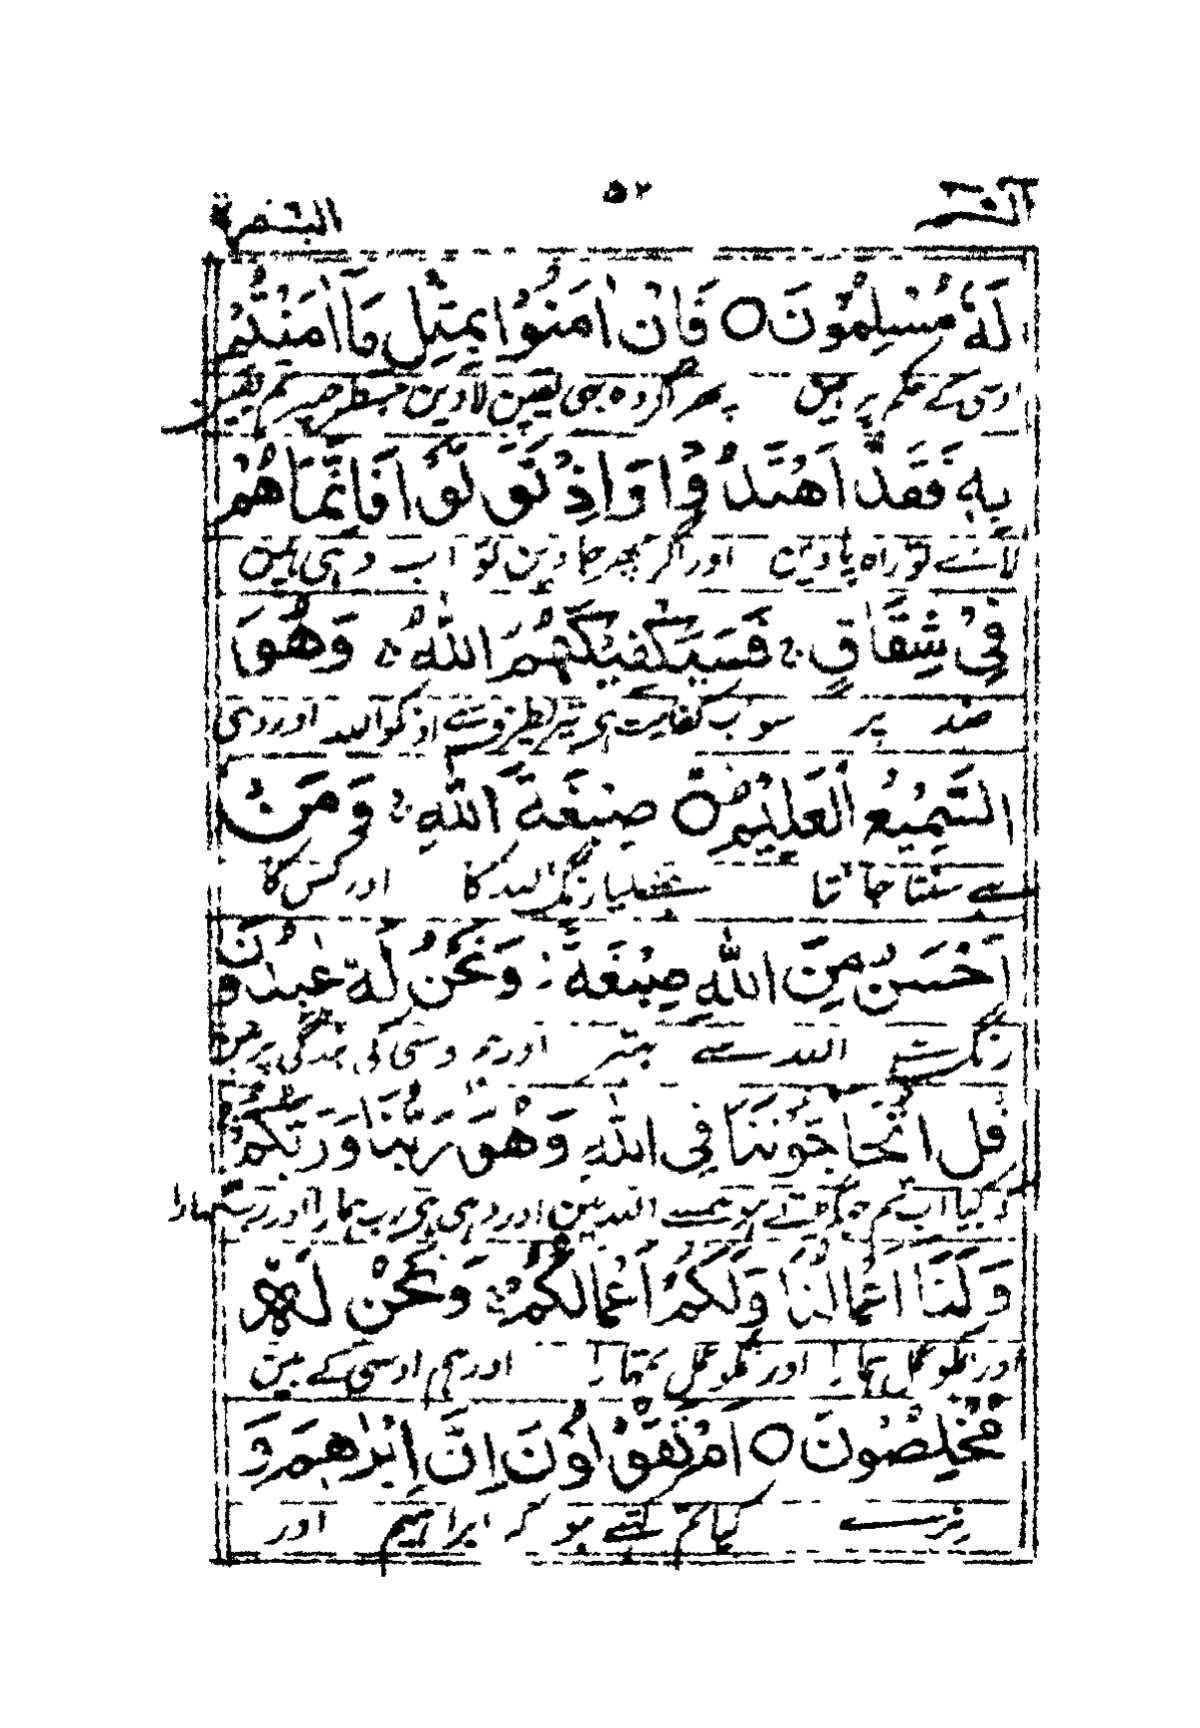 الٓمّٓ ۵۲ البقرة
لَهٗ مُسْلِمُوْنَ ○ فَاِنْ اٰمَنُوْا بِمِثْلِ مَاۤ اٰمَنْتُمْ
اوسی کے حکم پر ہیں پھر اگر وہ بھی یقین لاویں جسطرح پر تم یقین
بِهٖ فَقَدِ اهْتَدَوْا وَاِنْ تَوَلَّوْا فَاِنَّمَا هُمْ
لائے تو راہ پاویں اور اگر پھر جاویں تو اب وہی ہیں
فِیْ شِقَاقٍ ۚ فَسَیَكْفِیْكَهُمُ اللّٰهُ ۚ وَهُوَ
ضد پر سو اب کفایت ہی تیری طرف سے اونکو اللہ اور وہی
السَّمِیْعُ الْعَلِیْمُ ○ صِبْغَةَ اللّٰهِ ۚ وَمَنْ
ہے سنتا جانتا رنگ اللہ کا اور کس کا
اَحْسَنُ مِنَ اللّٰهِ صِبْغَةً ؗ وَّنَحْنُ لَهٗ عٰبِدُوْنَ
رنگ اللہ سے بہتر اور ہم اوسی کی بندگی پر ہیں
قُلْ اَتُحَآجُّوْنَنَا فِی اللّٰهِ وَهُوَ رَبُّنَا وَرَبُّكُمْ ۚ
کہہ کیا اب تم جھگڑتے ہو ہمسے اللہ میں اور وہی ہی رب ہمارا اور رب تمہارا
وَلَنَاۤ اَعْمَالُنَا وَلَكُمْ اَعْمَالُكُمْ ۚ وَنَحْنُ لَهٗ
اور ہمکو عمل ہمارے اور تمکو عمل تمہارے اور ہم اوسی کے ہیں
مُخْلِصُوْنَ ○ اَمْ تَقُوْلُوْنَ اِنَّ اِبْرٰهٖمَ وَ
نرے کیا تم کہتے ہو کہ ابراہیم اور